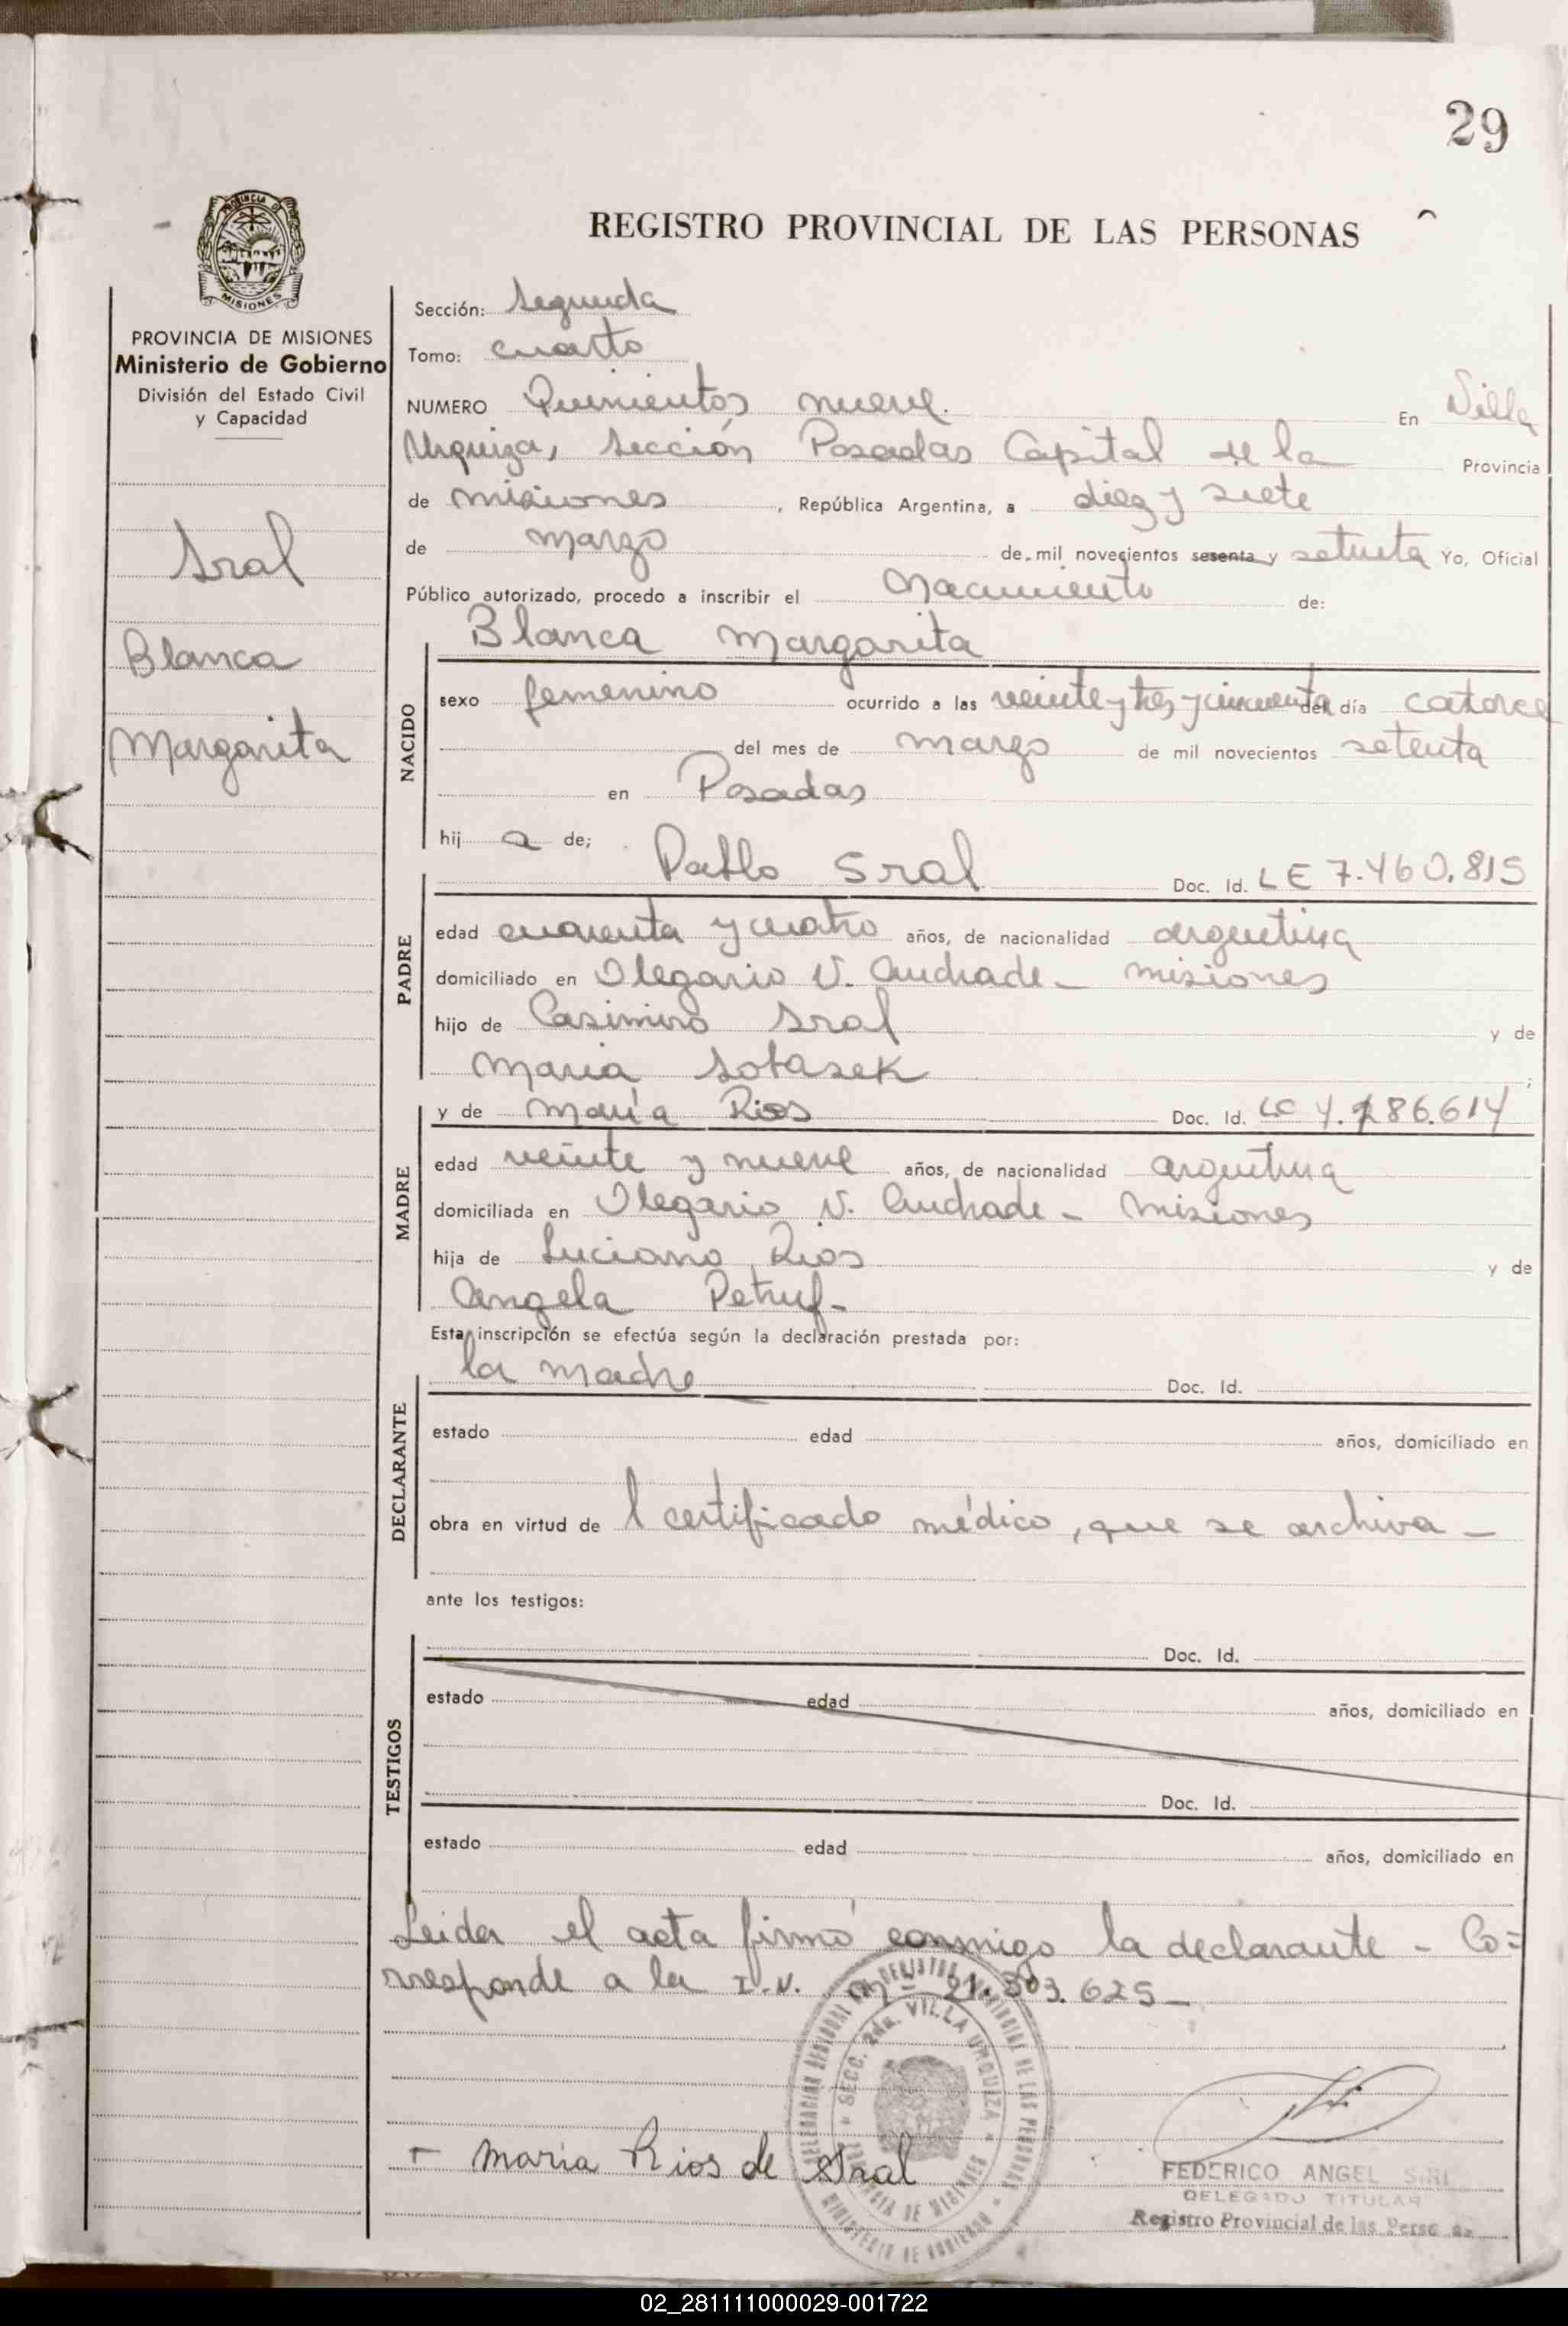 29
REGISTRO PROVINCIAL DE LAS PERSONAS
PROVINCIA DE MISIONES
Ministerio de Gobierno
División del Estado Civil
y Capacidad
Sral
Blanca
Margarita
Sección: Segunda
Tomo: cuarto
NUMERO Quinientos nueve. En Villa
Urquiza, Sección Posadas Capital de la Provincia
de misiones, República Argentina, a diez y siete
de marzo de mil novecientos sesenta y setenta Yo, Oficial
Público autorizado, procedo a inscribir el Nacimiento de:
Blanca Margarita
NACIDO
sexo femenino ocurrido a las veinte y tres y cincuenta del día catorce
del mes de marzo de mil novecientos setenta
en Posadas
hij a de;
Pablo Sral Doc. Id. LE 7.460.815
PADRE
edad cuarenta y cuatro años, de nacionalidad argentina
domiciliado en Olegario V. Andrade - misiones
hijo de Casimiro Sral y de
Maria Sobasek;
y de María Rios Doc. Id. LC 4.286.614
MADRE
edad veinte y nueve años, de nacionalidad argentina
domiciliada en Olegario V. Andrade - Misiones
hija de Luciano Rios y de
Angela Petruf-
Esta inscripción se efectúa según la declaración prestada por:
la madre Doc. Id.
DECLARANTE
estado edad años, domiciliado en
obra en virtud de l certificado médico, que se archiva -
ante los testigos:
TESTIGOS
Doc. Id.
estado edad años, domiciliado en
Doc. Id.
estado edad años, domiciliado en
Leida el acta firmó conmigo la declarante - Co=
rresponde a la I.N. Nº 21.303.625-
SECC. 2da. VILLA URQUIZA
PROVINCIA DE MISIONES
MINISTERIO DE GOBIERNO
+ Maria Rios de Sral
FEDERICO ANGEL SIRI
DELEGADO TITULAR
Registro Provincial de las Personas
02_281111000029-001722